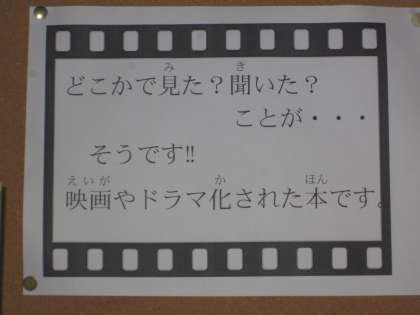 どこかで見た？聞いた？
ことが・・・
そうです!!
映画やドラマ化された本です。